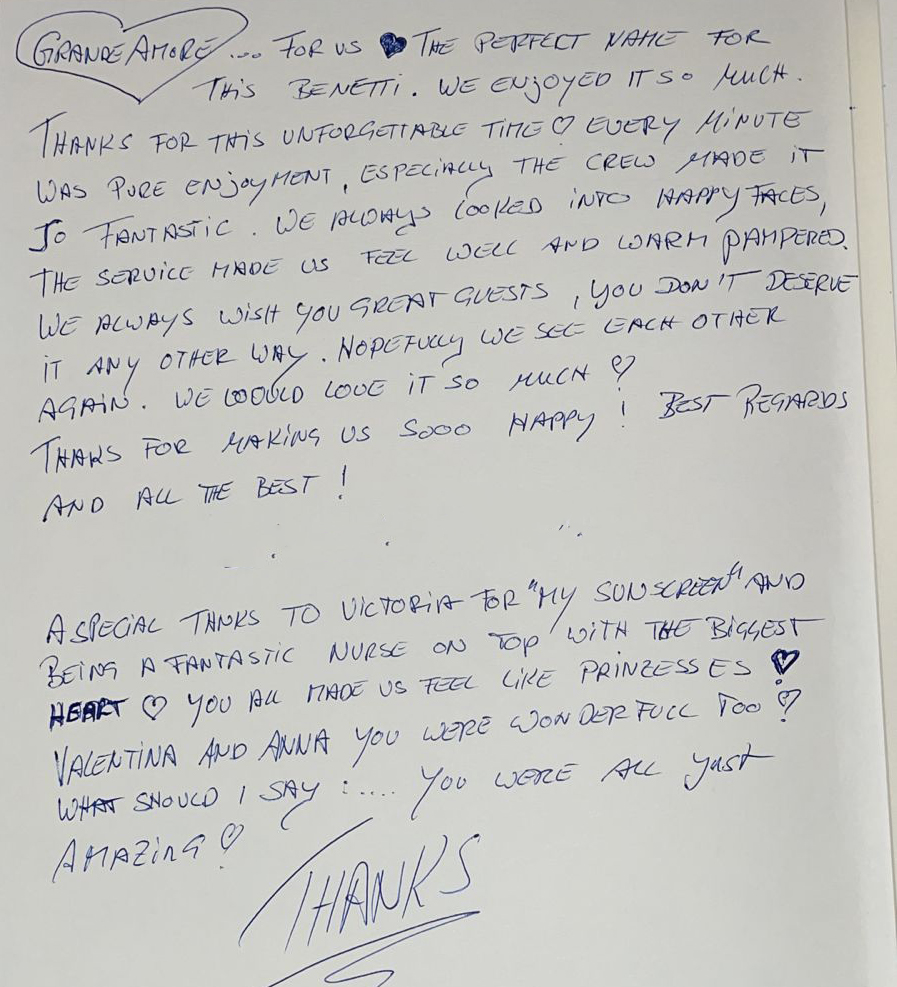 GRANDE AMORE ... FOR US ♥ THE PERFECT NAME FOR
THIS BENETTI. WE ENJOYED IT SO MUCH.
THANKS FOR THIS UNFORGETTABLE TIME ♡ EVERY MINUTE
WAS PURE ENJOYMENT, ESPECIALLY THE CREW MADE IT
SO FANTASTIC. WE ALWAYS LOOKED INTO HAPPY FACES,
THE SERVICE MADE US FEEL WELL AND WARM PAMPERED.
WE ALWAYS WISH YOU GREAT GUESTS, YOU DON'T DESERVE
IT ANY OTHER WAY. HOPEFULLY WE SEE EACH OTHER
AGAIN. WE WOULD LOVE IT SO MUCH ♡
THANKS FOR MAKING US SOOO HAPPY! BEST REGARDS
AND ALL THE BEST!
A SPECIAL THNKS TO VICTORIA FOR "MY SUNSCREEN" AND
BEING A FANTASTIC NURSE ON TOP WITH THE BIGGEST
HEART ♡ YOU ALL MADE US FEEL LIKE PRINZESSES ♥
VALENTINA AND ANNA YOU WERE WONDERFULL TOO ♡
WHAT SHOULD I SAY :.... YOU WERE ALL JUST
AMAZING ♡
THANKS